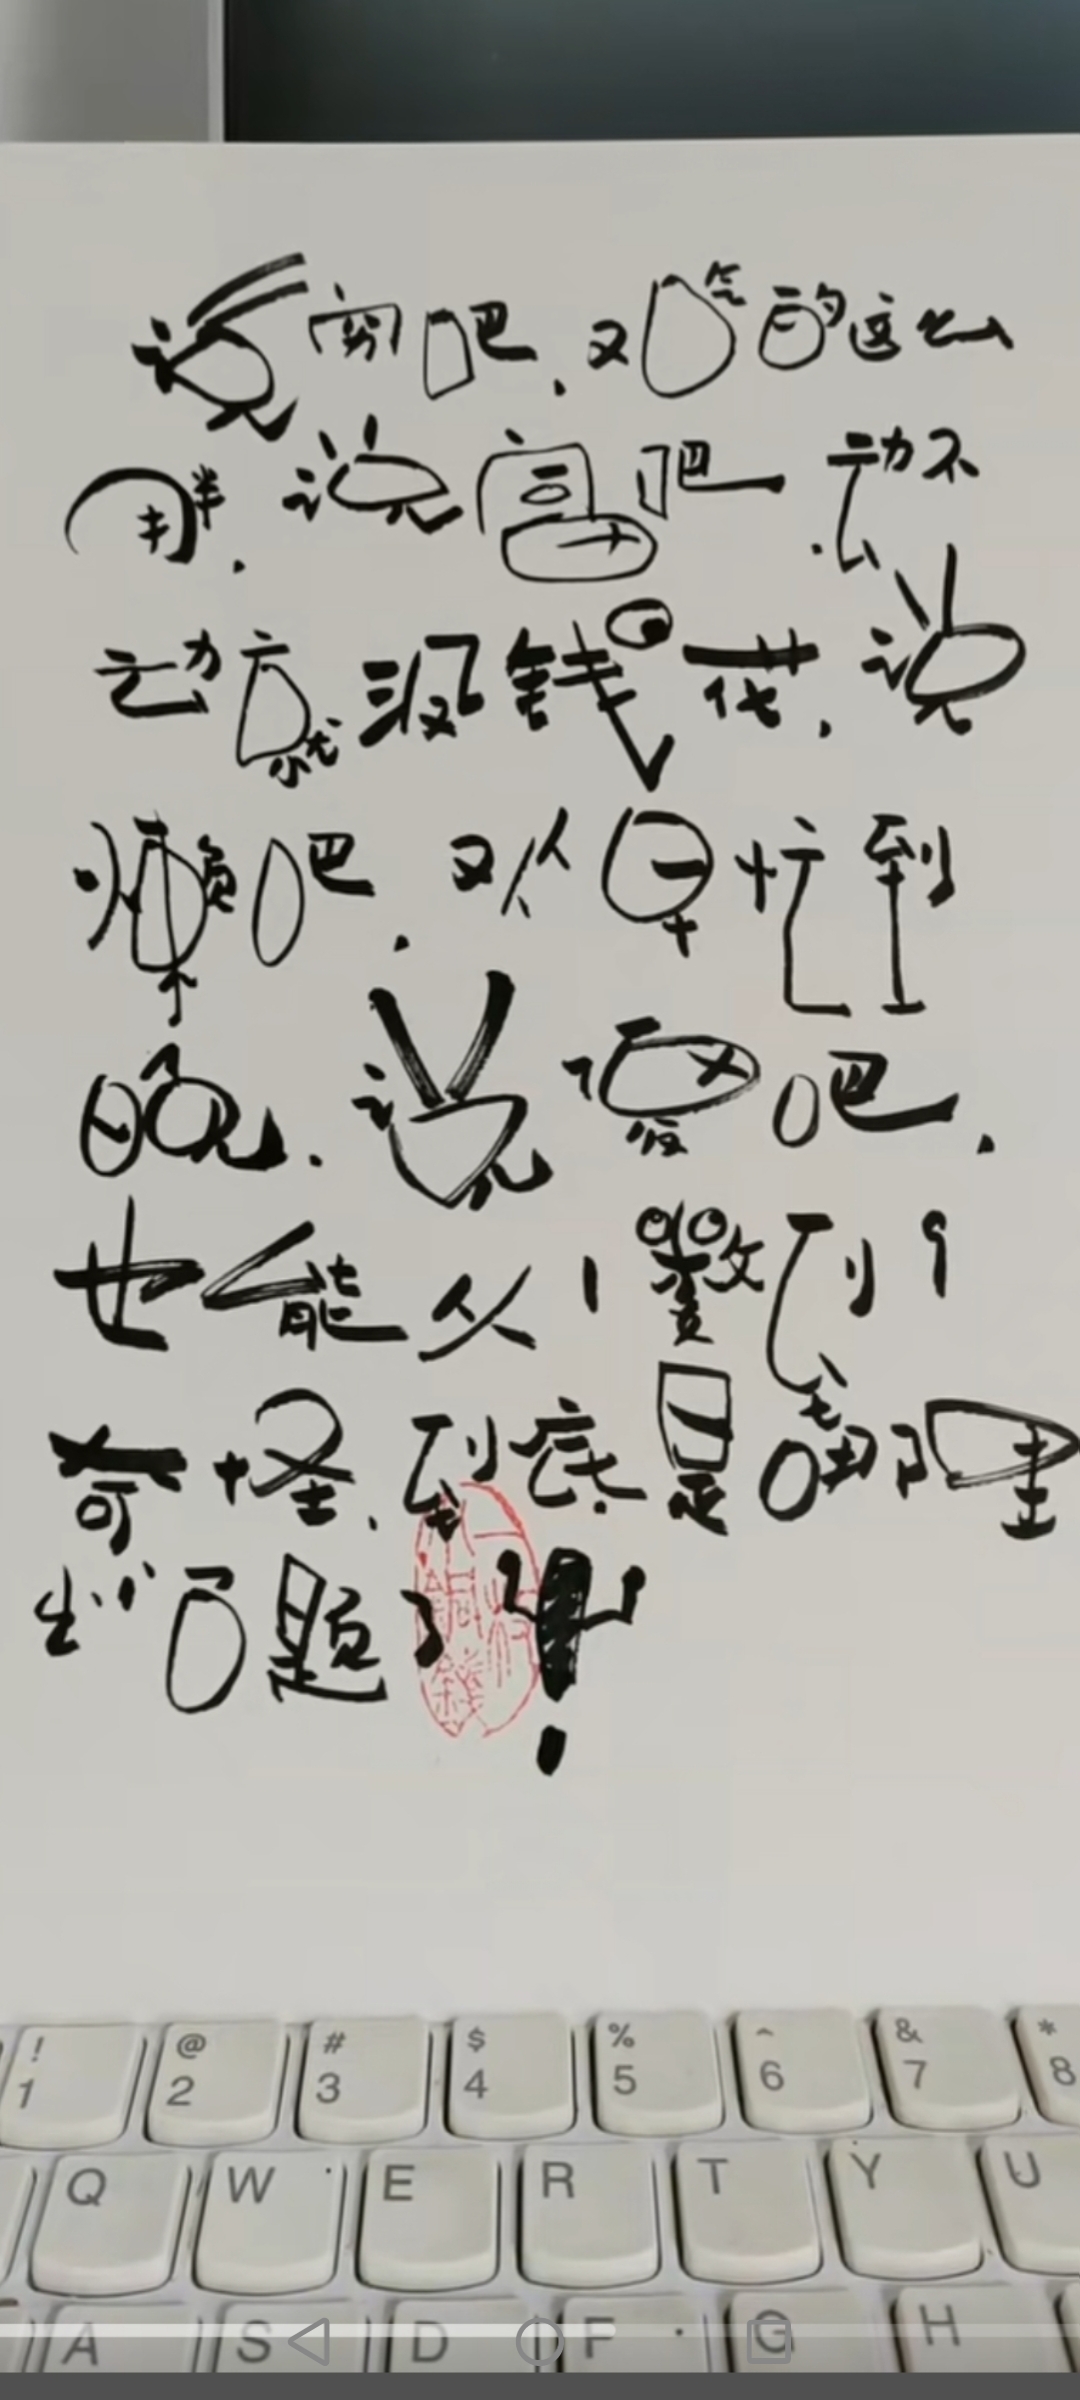 说穷吧.又吃的这么
胖.说富吧.动不
动就没钱花.说
懒吧.又从早忙到
晚.说傻吧.
也能从1数到9
奇怪.到底是哪里
出问题了!
! 1
@ 2
# 3
$ 4
% 5
^ 6
& 7
* 8
Q W E R T Y U
A S D F G H